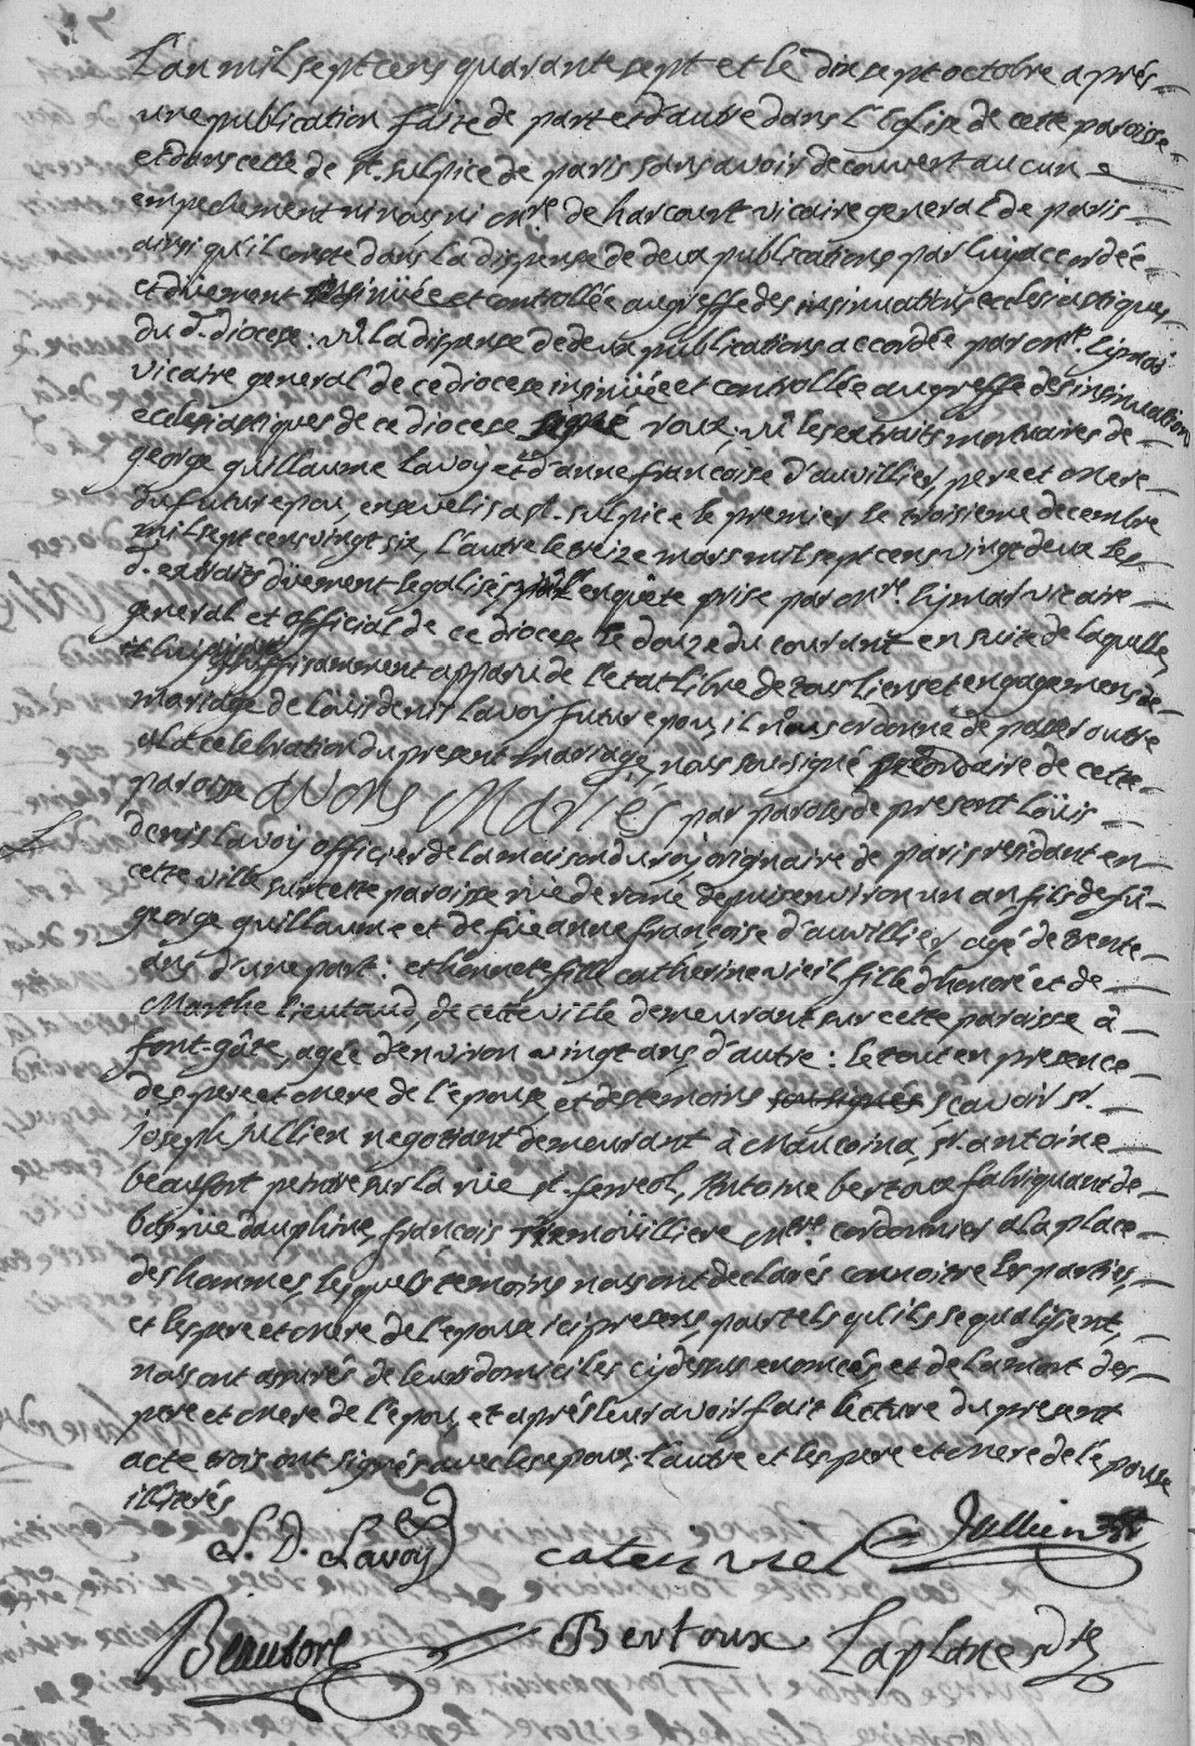 L'an mil sept cens quarante sept et le dix sept octobre après
une publication faite de part et d'autre dans l'Eglise de cette paroisse
et dans celle de st. sulpice de paris sans avoir decouvert aucun
empechement ni nous, ni mre. de harcourt vicaire general de paris
ainsi qu'il conste dans la dispense de deux publications par luy accordée
et duement insinüée et controllée au greffe des insinuations ecclesiastiques
du d. diocese: vû la dispense de deux publications accordée par mre.
vicaire general de ce diocese insinüée et controllée au greffe des insinuations
ecclesiastiques de ce diocese signé roux; vû les extraits mortuaires de
george guillaume Lavoy et d'anne françoise d'auvillier, pere et mere
du futur epoux, ensevelis a st. sulpice le premier le troisieme decembre
mil sept cens vingt six, l'autre le treize mars mil sept cens vingt deux les
d. extraits düement legalisés enquête prise par mre. vicaire
general et official de ce diocese le douze du courant en suite de laquelle,
suffisamment apparu de l'etat libre de tous liens et engagemens de
mariage de Loüis denis Lavoy futur epoux, il nous ordonné de passer outre
a la celebration du present mariage, nous soussigné de cette
paroisse avons Mariés par paroles de present Loüis
denis Lavoy officier de la maison du roy originaire de paris residant en
cette ville sur cette paroisse rüe de rome depuis environ un an, fils de fû
george guillaume et de füe anne françoise d'auvillier, agé de trente
ans d'une part: et honnete fille catherine vieil fille d'honoré et de
Marthe lieutaud, de cette ville demeurant sur cette paroisse à
font-gâte, agée d'environ vingt ans, d'autre: le tout en presence
des pere et mere de l'epouse, et des temoins soussignés sçavoir sr.
joseph jullien negotiant demeurant à Maucoina, sr. antoine
beaufort peintre sur la rüe st. ferreol, Antoine bertoux fabriquant de
bas rüe dauphine, françois Tremoüilliere Mtre. cordonnier a la place
des hommes, lesquels temoins nous ont declarés connoitre les parties,
et les pere et mere de l'epouse ici presens, pour tels qu'ils se qualifient,
nous ont assurés de leurs domiciles cy dessus enoncés, et de la mort des
pere et mere de l'epoux, et après leur avoir fait lecture du present
acte trois ont signés avec les epoux, l'autre et les pere et mere de l'epouse
illiterés
L. D. Lavoy caterin vieil Jullien
Beaufort Bertoux Laplane